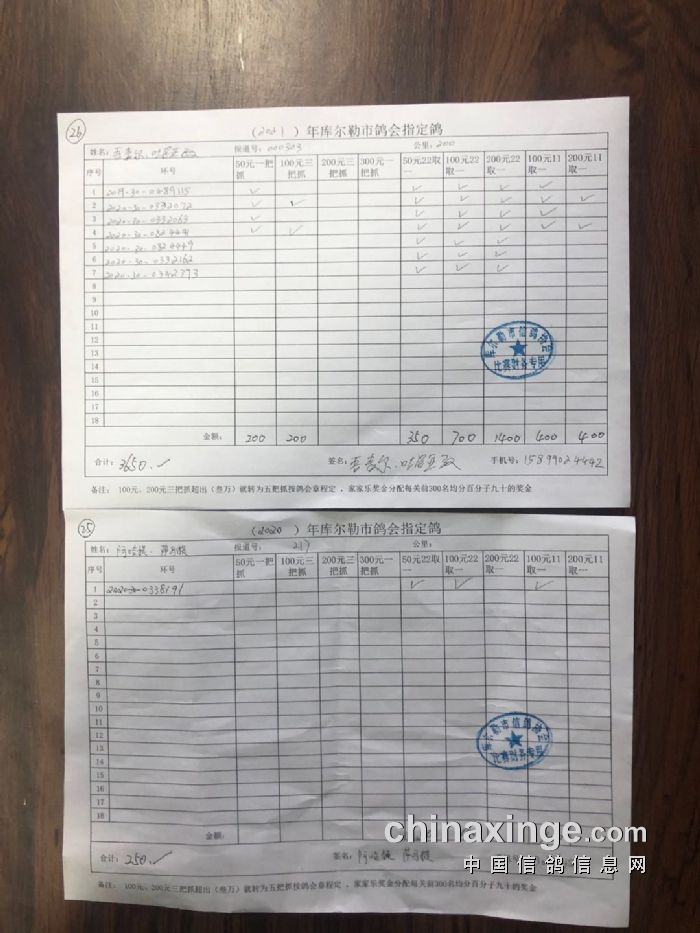 26
（2021）年库尔勒市鸽会指定鸽
姓名： 报道号：000303 公里：200
序号 环号 50元一把抓 100元三把抓 200元三把抓 300元一把抓 50元22取一 100元22取一 200元22取一 100元11取一 200元11取一
1 2019-30-0489115 ✓ ✓ ✓ ✓ ✓
2 2020-30-0332072 ✓ ✓ ✓ ✓ ✓ ✓ ✓
3 2020-30-0332063 ✓ ✓ ✓ ✓ ✓
4 2020-30-0824441 ✓ ✓ ✓ ✓ ✓ ✓ ✓
5 2020-30-0824449 ✓ ✓ ✓
6 2020-30-0332162 ✓ ✓ ✓
7 2020-30-0342793 ✓ ✓ ✓
8
9
10
11
12
13
14
15
16
17
18
金额： 200 200 350 700 1400 400 400
合计：3650 签名： 手机号：15899024442
备注： 100元、200元三把抓超出（叁万）就转为五把抓按鸽会章程定 ，家家乐奖金分配每关前300名均分百分子九十的奖金
库尔勒市信鸽协会
比赛财务专用
25
（2020）年库尔勒市鸽会指定鸽
姓名： 报道号：217 公里：
序号 环号 50元一把抓 100元三把抓 200元三把抓 300元一把抓 50元22取一 100元22取一 200元22取一 100元11取一 200元11取一
1 2020-30-0338191 ✓ ✓ ✓
2
3
4
5
6
7
8
9
10
11
12
13
14
15
16
17
18
金额：
合计：250 签名：
备注： 100元、200元三把抓超出（叁万）就转为五把抓按鸽会章程定 ，家家乐奖金分配每关前300名均分百分子九十的奖金
库尔勒市信鸽协会
比赛财务专用
chinaxinge.com
中国信鸽信息网